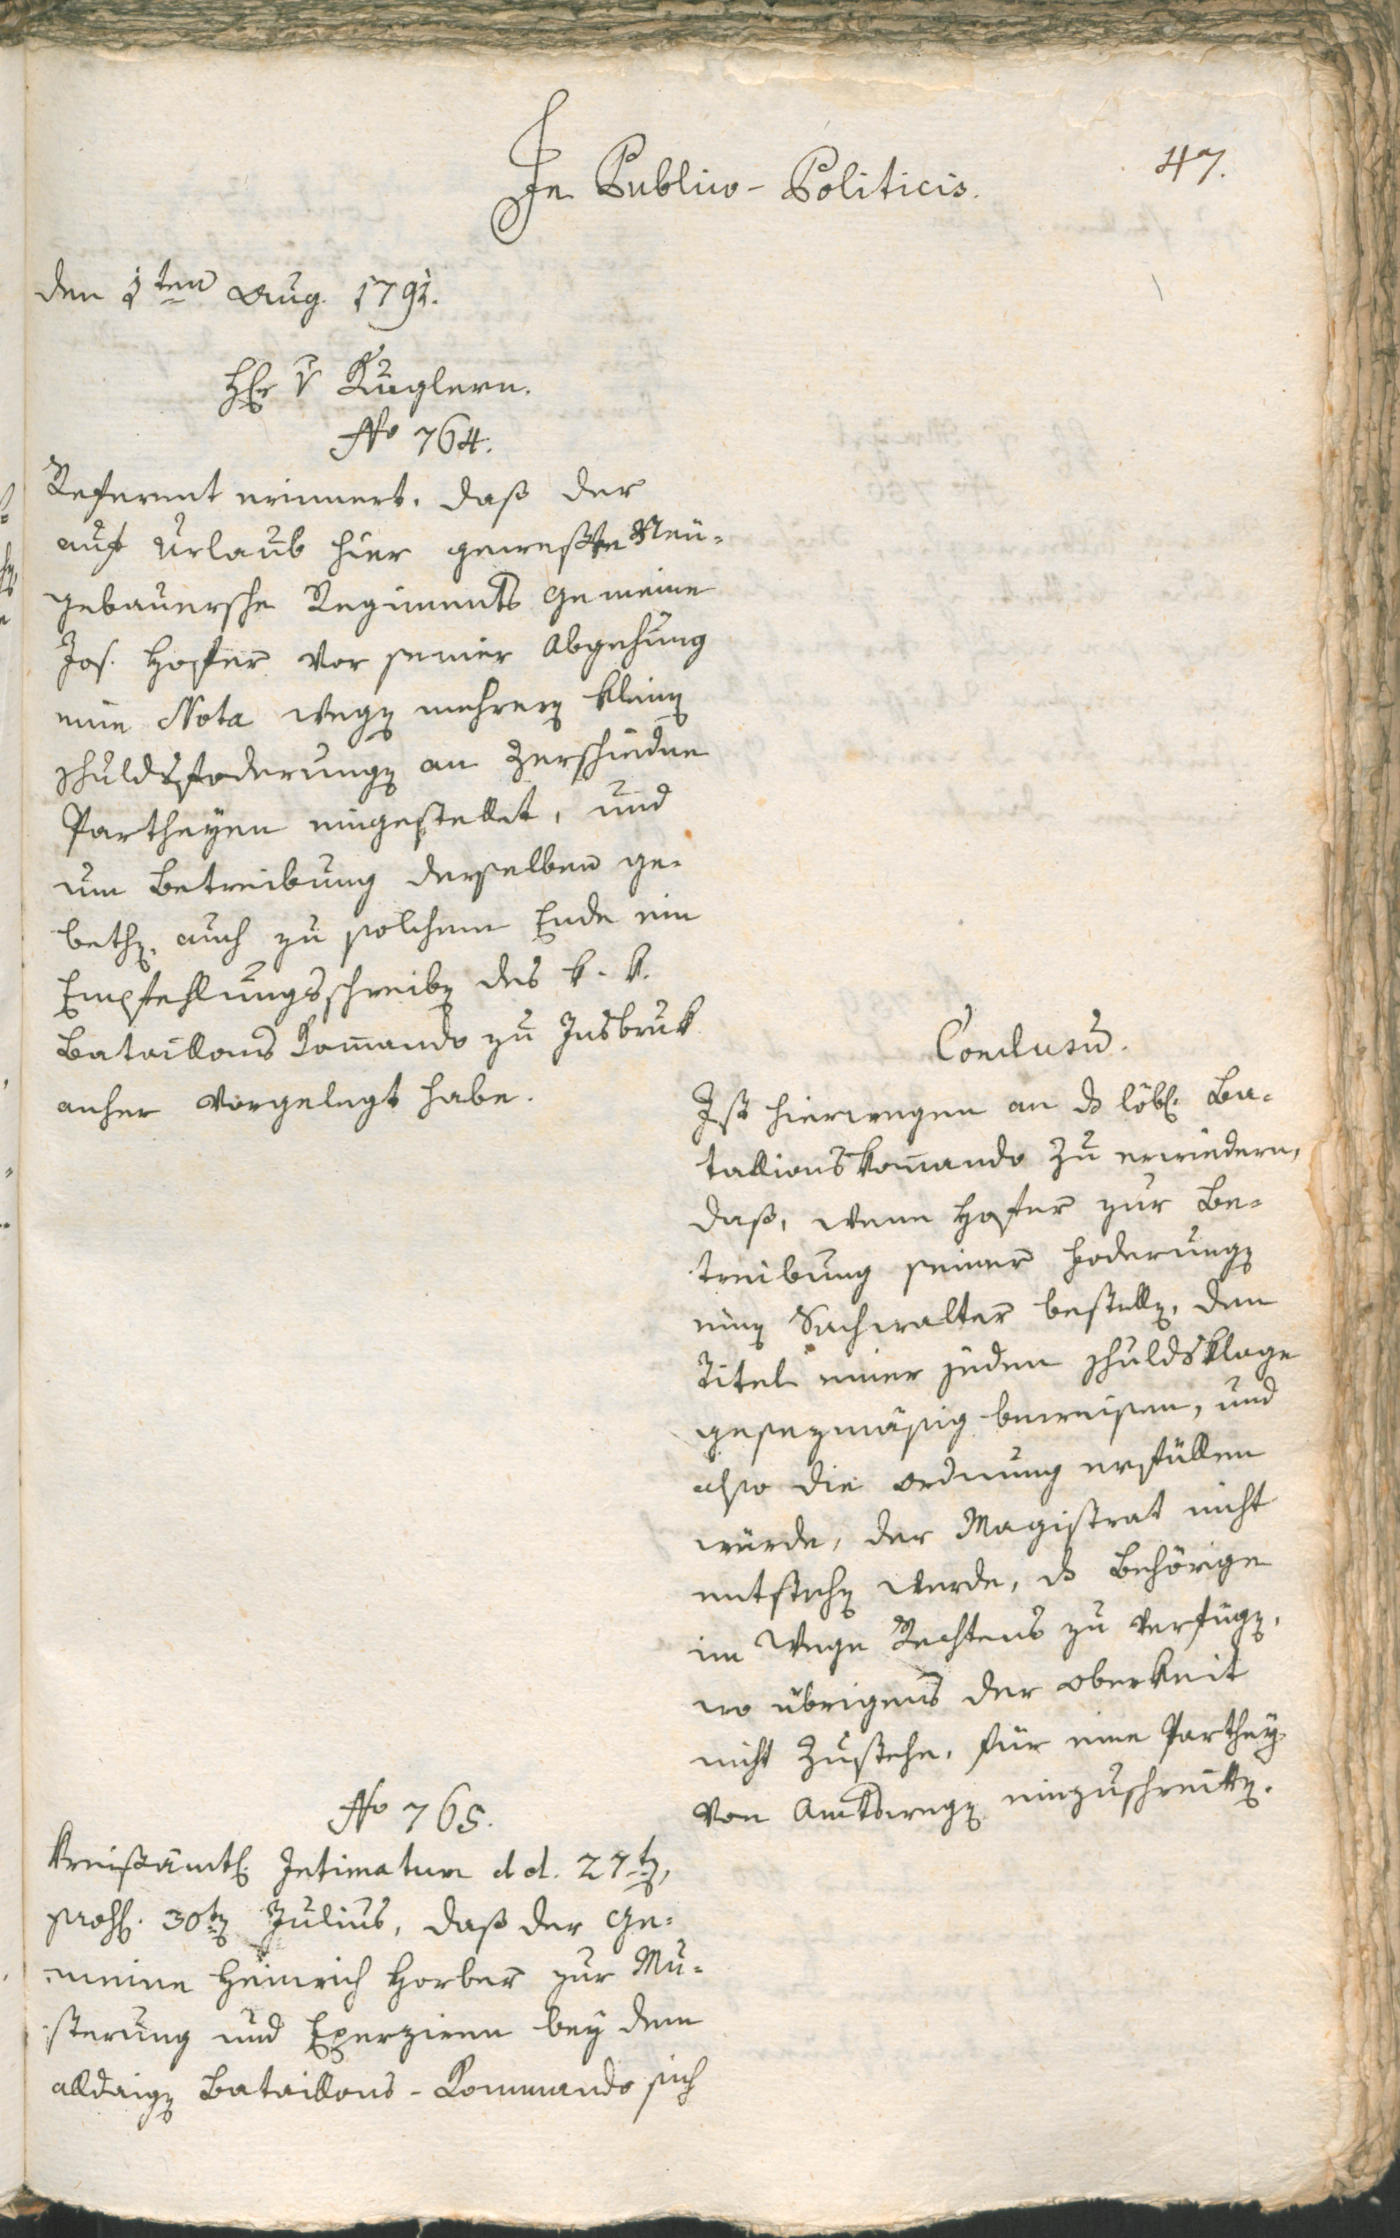 47.
In Publico-Politicis.
den 1ten Aug. 1791.
H: v Kuglern.
No 764.
Referent erinnert, daß der
auf Urlaub hier geweßte Neu-
gebauersche Regiments Gemeine
Jos. Hofer vor seiner Abgehung
eine Nota wegen mehrern kleinen
Schuldsfoderungen an Zerschiedne
Partheyen eingestellet, und
um Betreibung derselben ge-
bethen, auch zu solchem Ende ein
Empfehlungsschreiben des k. k.
Bataillons Kom̄ando zu Insbruk
anher vorgelegt habe.
Conclusū.
Ist hierwegen an ds löbl. Ba-
tallionskom̄ando zu erwiedern,
daß, wenn Hofer zur Be-
treibung seiner Foderungen
einen Sachwalter bestellen, den
Titel einer jeden Schuldsklage
gesezmäsig beweisen, und
also die Ordnung erfüllen
würde, der Magistrat nicht
entstehen werde, ds Behörige
im Wege Rechtens zu verfügen,
wo übrigens der Oberkeit
nicht zustehe, für eine Parthey
von Amtswegen einzuschreiten.
No 765.
Kreißämtl. Intimatum d d. 27ten,
prohl. 30ten Julius, daß der Ge-
meine Heinrich Horber zur Mu-
sterung und Exerziren bey dem
alldaigen Bataillons-Kommando sich